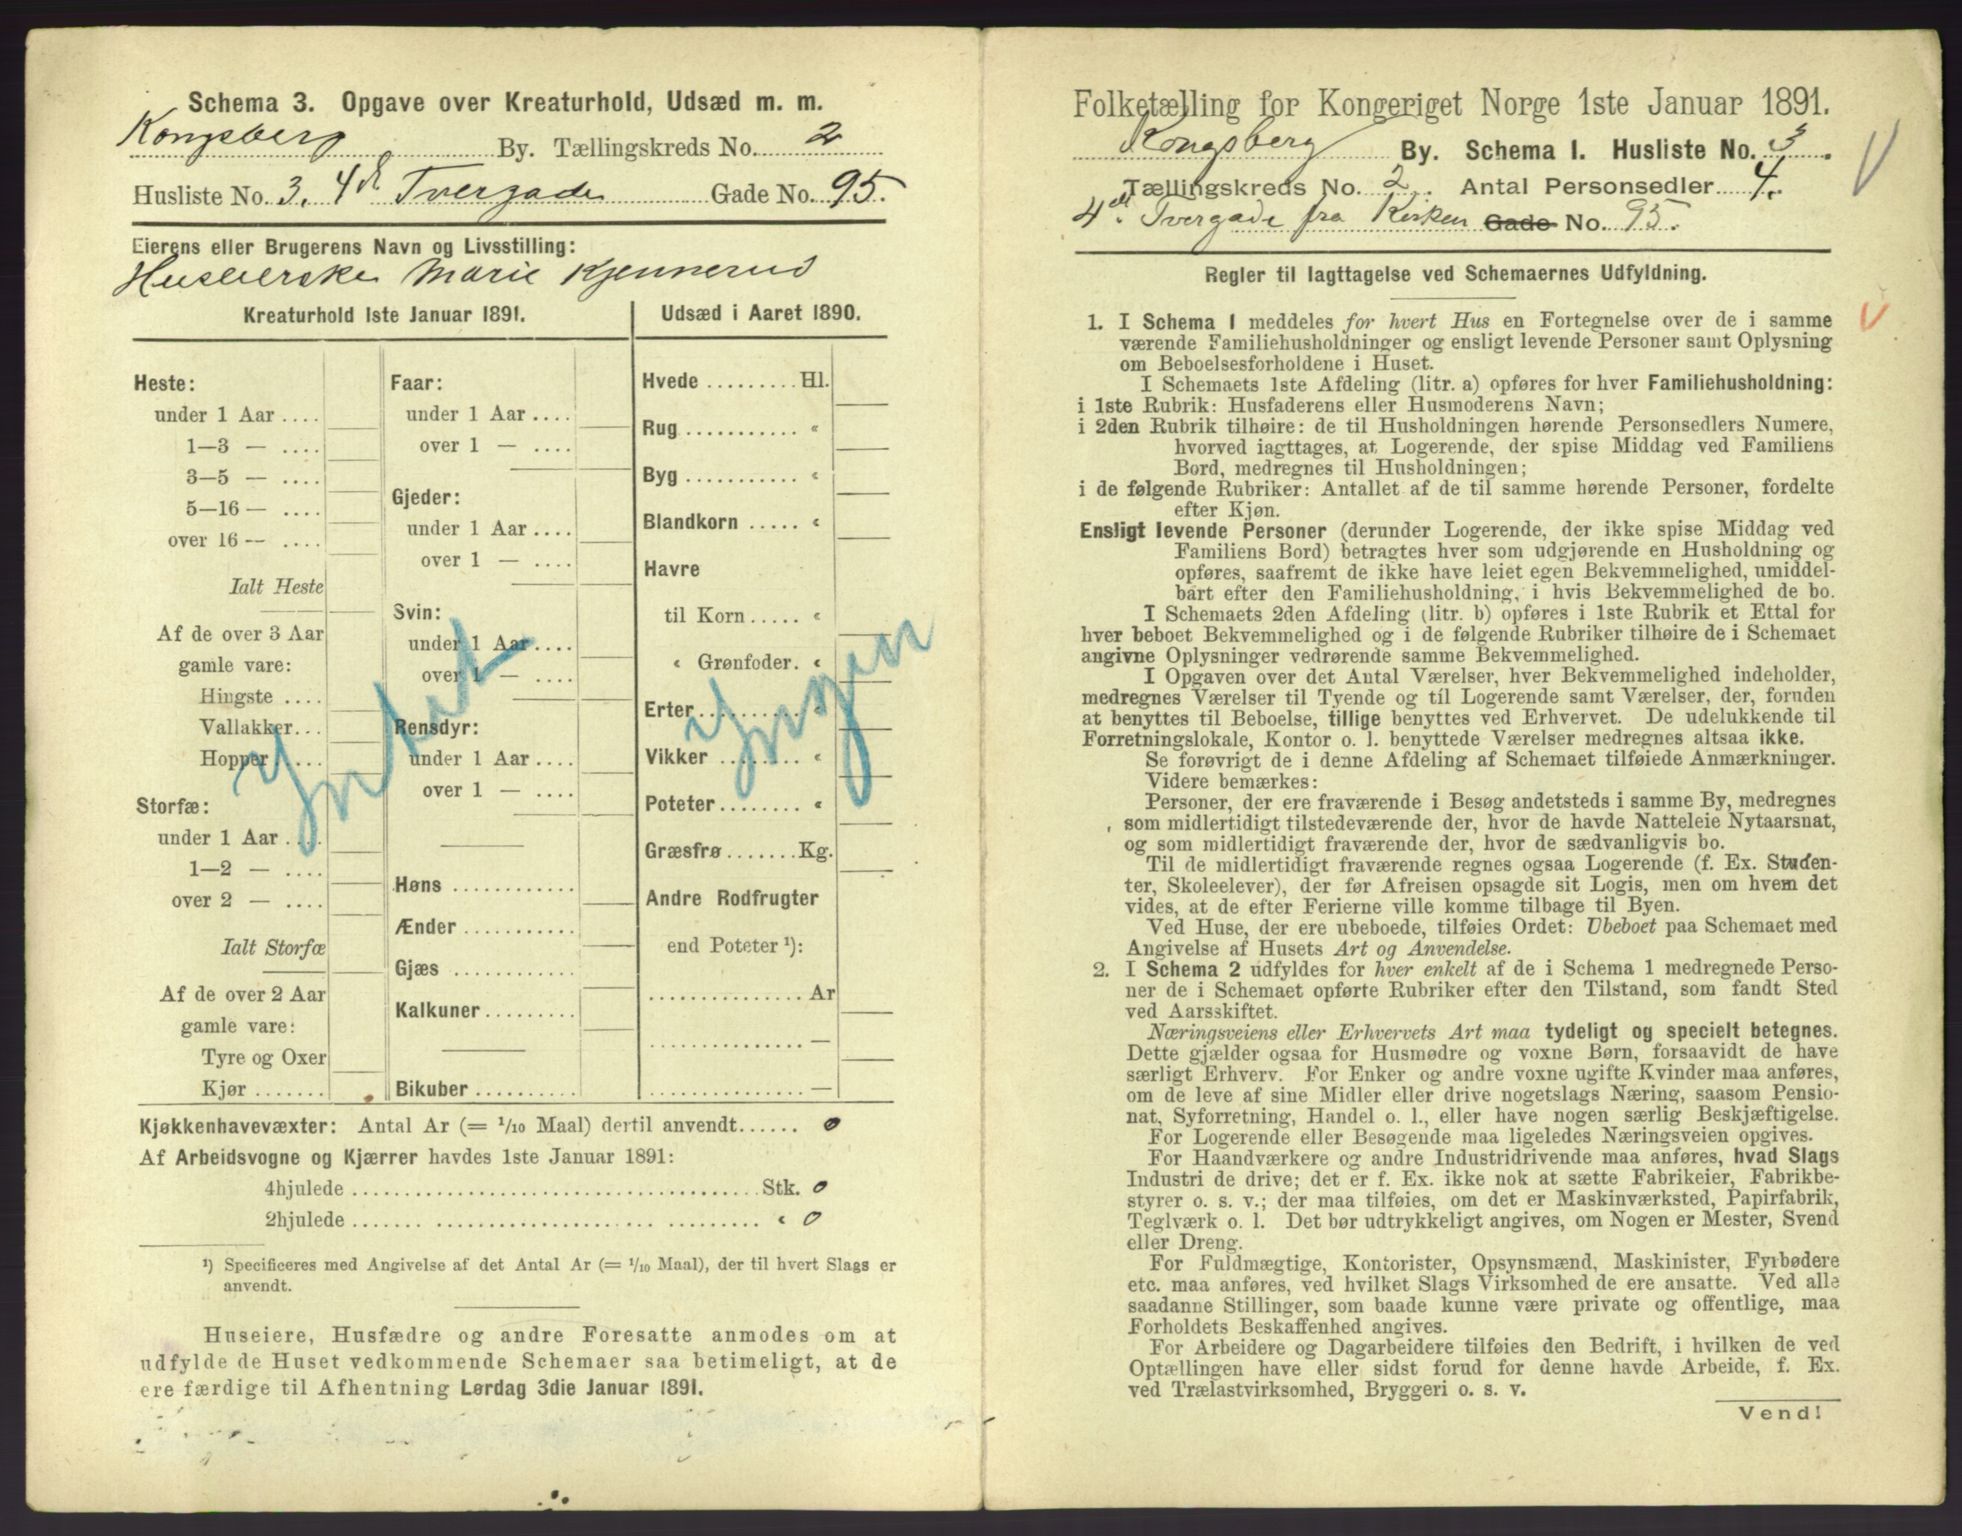 Schema 3. Opgave over Kreaturhold, Udsæd m. m.
Kongsberg By. Tællingskreds No. 2
Husliste No. 3. 4de Tvergade Gade No. 95.
Eierens eller Brugerens Navn og Livsstilling:
Huseierske Marie Kjennerud
Kreaturhold 1ste Januar 1891.
Heste:
under 1 Aar ....
1—3 — ....
3—5 — ....
5—16 — ....
over 16 — ....
Ialt Heste
Af de over 3 Aar
gamle vare:
Hingste ....
Vallakker...
Hopper ....
Storfæ:
under 1 Aar ....
1—2 — ....
over 2 — ....
Ialt Storfæ
Af de over 2 Aar
gamle vare:
Tyre og Oxer
Kjør .......
Faar:
under 1 Aar ....
over 1 — ....
Gjeder:
under 1 Aar ....
over 1 — ....
Svin:
under 1 Aar ....
over 1 — ....
Rensdyr:
under 1 Aar ....
over 1 — ....
Høns ............
Ænder ...........
Gjæs ............
Kalkuner .........
Bikuber ..........
Intet
Udsæd i Aaret 1890.
Hvede ......... Hl.
Rug ........... «
Byg ........... «
Blandkorn ..... «
Havre
til Korn ..... «
« Grønfoder. «
Erter .......... «
Vikker ........ «
Poteter ........ «
Græsfrø ....... Kg.
Andre Rodfrugter
end Poteter ¹):
............... Ar
............... —
............... —
Ingen
Kjøkkenhavevæxter: Antal Ar (= 1/10 Maal) dertil anvendt...... 0
Af Arbeidsvogne og Kjærrer havdes 1ste Januar 1891:
4hjulede ........................................ Stk. 0
2hjulede ........................................ « 0
¹) Specificeres med Angivelse af det Antal Ar (= 1/10 Maal), der til hvert Slags er
anvendt.
Huseiere, Husfædre og andre Foresatte anmodes om at
udfylde de Huset vedkommende Schemaer saa betimeligt, at de
ere færdige til Afhentning Lørdag 3die Januar 1891.
Folketælling for Kongeriget Norge 1ste Januar 1891.
Kongsberg By. Schema I. Husliste No. 3.
Tællingskreds No. 2. Antal Personsedler 4.
4de Tvergade fra Kirken Gade No. 95.
Regler til Iagttagelse ved Schemaernes Udfyldning.
1. I Schema 1 meddeles for hvert Hus en Fortegnelse over de i samme
værende Familiehusholdninger og ensligt levende Personer samt Oplysning
om Beboelsesforholdene i Huset.
I Schemaets 1ste Afdeling (litr. a) opføres for hver Familiehusholdning:
i 1ste Rubrik: Husfaderens eller Husmoderens Navn;
i 2den Rubrik tilhøire: de til Husholdningen hørende Personsedlers Numere,
hvorved iagttages, at Logerende, der spise Middag ved Familiens
Bord, medregnes til Husholdningen;
i de følgende Rubriker: Antallet af de til samme hørende Personer, fordelte
efter Kjøn.
Ensligt levende Personer (derunder Logerende, der ikke spise Middag ved
Familiens Bord) betragtes hver som udgjørende en Husholdning og
opføres, saafremt de ikke have leiet egen Bekvemmelighed, umiddel-
bart efter den Familiehusholdning, i hvis Bekvemmelighed de bo.
I Schemaets 2den Afdeling (litr. b) opføres i 1ste Rubrik et Ettal for
hver beboet Bekvemmelighed og i de følgende Rubriker tilhøire de i Schemaet
angivne Oplysninger vedrørende samme Bekvemmelighed.
I Opgaven over det Antal Værelser, hver Bekvemmelighed indeholder,
medregnes Værelser til Tyende og til Logerende samt Værelser, der, foruden
at benyttes til Beboelse, tillige benyttes ved Erhvervet. De udelukkende til
Forretningslokale, Kontor o. l. benyttede Værelser medregnes altsaa ikke.
Se forøvrigt de i denne Afdeling af Schemaet tilføiede Anmærkninger.
Videre bemærkes:
Personer, der ere fraværende i Besøg andetsteds i samme By, medregnes
som midlertidigt tilstedeværende der, hvor de havde Natteleie Nytaarsnat,
og som midlertidigt fraværende der, hvor de sædvanligvis bo.
Til de midlertidigt fraværende regnes ogsaa Logerende (f. Ex. Studen-
ter, Skoleelever), der før Afreisen opsagde sit Logis, men om hvem det
vides, at de efter Ferierne ville komme tilbage til Byen.
Ved Huse, der ere ubeboede, tilføies Ordet: Ubeboet paa Schemaet med
Angivelse af Husets Art og Anvendelse.
2. I Schema 2 udfyldes for hver enkelt af de i Schema 1 medregnede Perso-
ner de i Schemaet opførte Rubriker efter den Tilstand, som fandt Sted
ved Aarsskiftet.
Næringsveiens eller Erhvervets Art maa tydeligt og specielt betegnes.
Dette gjælder ogsaa for Husmødre og voxne Børn, forsaavidt de have
særligt Erhverv. For Enker og andre voxne ugifte Kvinder maa anføres,
om de leve af sine Midler eller drive nogetslags Næring, saasom Pensio-
nat, Syforretning, Handel o. l., eller have nogen særlig Beskjæftigelse.
For Logerende eller Besøgende maa ligeledes Næringsveien opgives.
For Haandværkere og andre Industridrivende maa anføres, hvad Slags
Industri de drive; det er f. Ex. ikke nok at sætte Fabrikeier, Fabrikbe-
styrer o. s. v.; der maa tilføies, om det er Maskinværksted, Papirfabrik,
Teglværk o. l. Det bør udtrykkeligt angives, om Nogen er Mester, Svend
eller Dreng.
For Fuldmægtige, Kontorister, Opsynsmænd, Maskinister, Fyrbødere
etc. maa anføres, ved hvilket Slags Virksomhed de ere ansatte. Ved alle
saadanne Stillinger, som baade kunne være private og offentlige, maa
Forholdets Beskaffenhed angives.
For Arbeidere og Dagarbeidere tilføies den Bedrift, i hvilken de ved
Optællingen have eller sidst forud for denne havde Arbeide, f. Ex.
ved Trælastvirksomhed, Bryggeri o. s. v.
Vend!